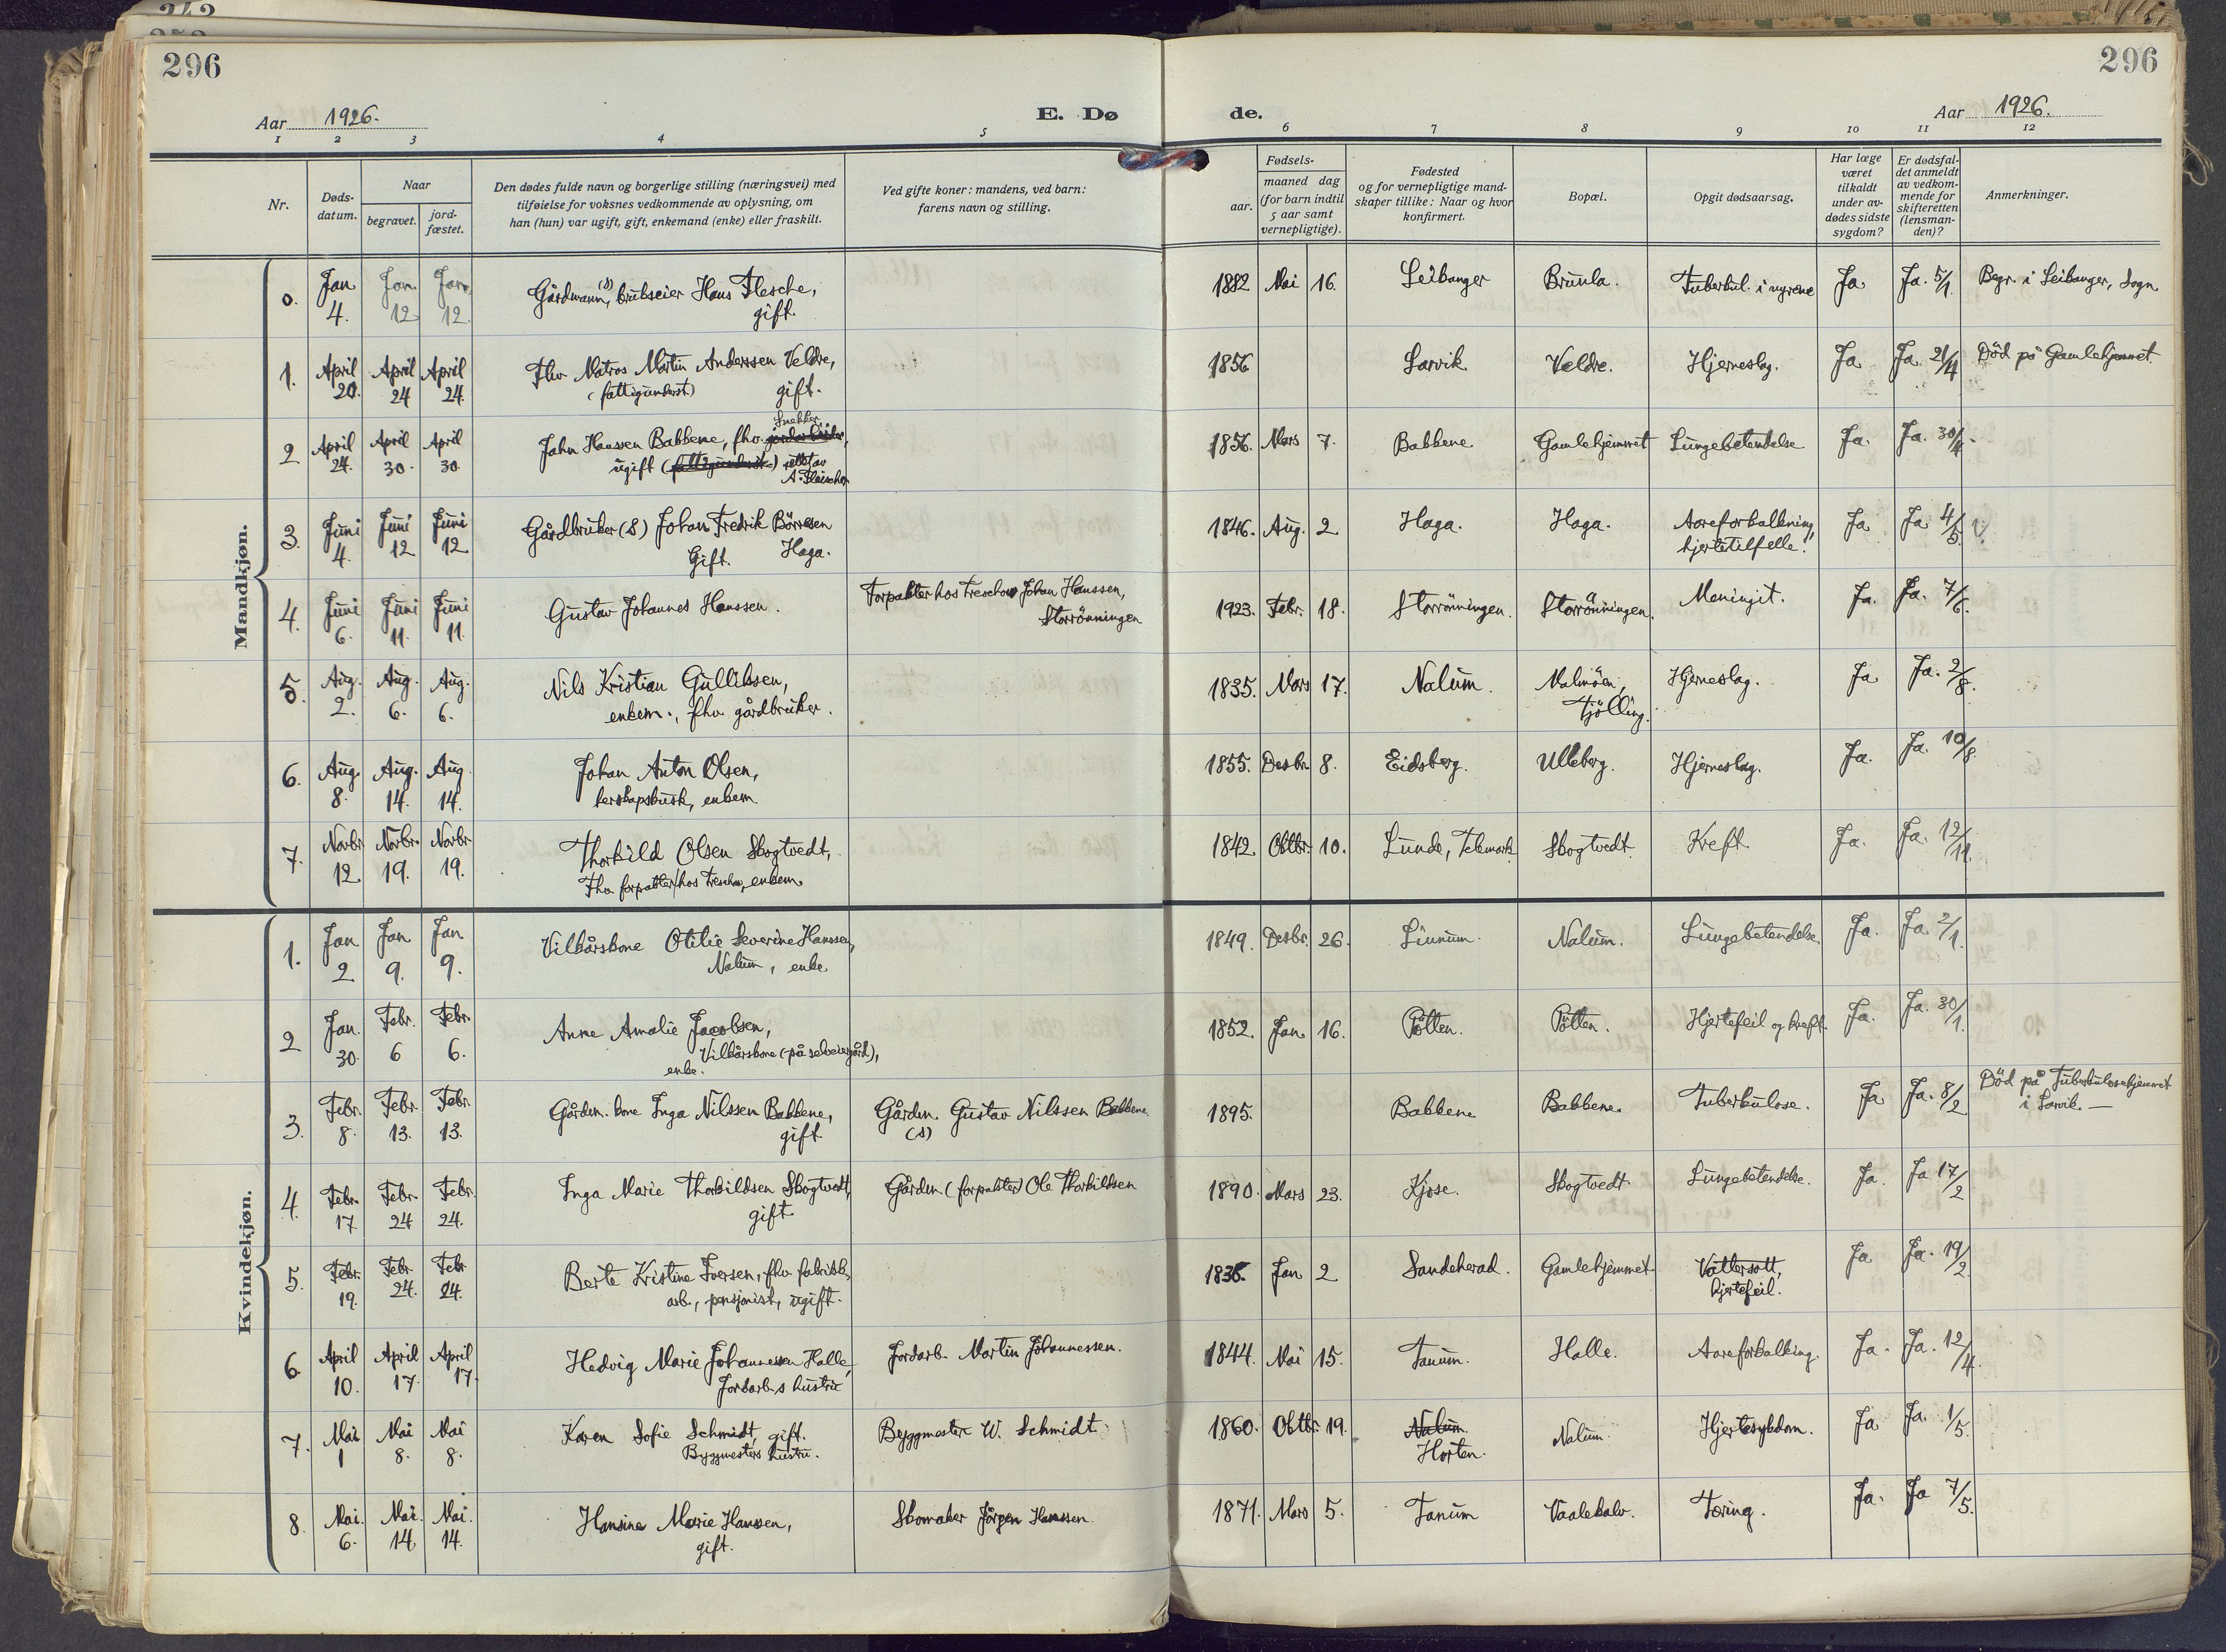 242
296
296
Aar 1926.
E. Dø
de.
Aar 1926.
1 2 3 4 5 6 7 8 9 10 11 12
Nr.
Døds-
datum.
Naar
begravet.
jord-
fæstet.
Den dødes fulde navn og borgerlige stilling (næringsvei) med
tilføielse for voksnes vedkommende av oplysning, om
han (hun) var ugift, gift, enkemand (enke) eller fraskilt.
Ved gifte koner: mandens, ved barn:
farens navn og stilling.
Fødsels-
aar.
maaned dag
(for barn indtil
5 aar samt
vernepligtige).
Fødested
og for vernepligtige mand-
skaper tillike: Naar og hvor
konfirmert.
Bopæl.
Opgit dødsaarsag.
Har læge
været
tilkaldt
under av-
dødes sidste
sygdom?
Er dødsfal-
det anmeldt
av vedkom-
mende for
skifteretten
(lensman-
den)?
Anmerkninger.
Mandkjøn.
0. Jan 4. Jan. 12 Jan. 12. Gårdmann (s), brukseier Hans Flesche,
gift.
1882 Mai 16. Leikanger Brunla. Tuberkul. i nyrene Ja Ja. 5/1. Begr. i Leikanger, Sogn
1. April 20. April 24 April 24. Fhv Matros Martin Anderssen Veldre,
(fattigunderst.) gift.
1856 Larvik Veldre. Hjerneslag. Ja Ja. 21/4 Död på Gamlehjemmet
2 April 24. April 30. April 30 Jahn Hanssen Bakkene, fhv. jordarbeider, Snekker
ugift (fattigunderst.) rettet av
A. Fleischer
1856. Mars 7. Bakkene Gamlehjemmet Lungebetendelse Ja. Ja. 30/4.
3. Juni 4. Juni 12 Juni 12 Gårdbruker (s) Johan Fredrik Börresen
Gift. Haga.
1846. Aug. 2 Haga. Haga. Aareforkalkning,
hjertetilfelle. Ja Ja 4/5.
4. Juni 6. Juni 11. Juni 11. Gustav Johannes Hanssen. Forpakter hos Treschow Johan Hanssen,
Storrönningen
1923. Febr. 18. Storrönningen. Storrönningen. Meningit. Ja. Ja. 7/6.
5. Aug. 2. Aug. 6. Aug. 6. Nils Kristian Gulliksen,
enkem., fhv. gårdbruker.
1835. Mars 17. Nalum. Malmöen,
Tjölling. Hjerneslag. Ja Ja. 2/8.
6. Aug. 8. Aug. 14. Aug. 14. Johan Anton Olsen,
herskapskusk, enkem
1855. Desbr. 8. Eidsberg. Ulleberg. Hjerneslag. Ja. Ja. 10/8.
7. Novbr. 12 Novbr. 19. Novbr. 19. Thorkild Olsen Skogtvedt,
Fhv. forpakter hos Treschow, enkem.
1842. Oktbr. 10. Lunde, Telemark Skogtvedt. Kreft Ja. Ja. 12/11.
Kvindekjøn.
1. Jan 2 Jan 9. Jan 9. Vilkårskone Otilie Severine Hanssen,
Nalum, enke
1849. Desbr. 26. Linnum. Nalum. Lungebetendelse. Ja. Ja. 2/1.
2 Jan. 30. Febr. 6 Febr. 6. Anne Amalie Jacobsen,
Vilkårskone (på selveiergård),
enke.
1852. Jan. 16. Pötten. Pötten. Hjertefeil og kreft. Ja. Ja. 30/1.
3. Febr. 8. Febr. 13. Febr. 13. Gårdm. kone Inga Nilssen Bakkene,
gift Gårdm. Gustav Nilssen Bakkene
(s)
1895. Bakkene Bakkene. Tuberkulose. Ja Ja. 8/2 Död på Tuberkulosehjemmet
i Larvik. —
4. Febr. 17 Febr. 24 Febr. 24. Inga Marie Thorkildsen Skogtvedt,
gift. Gårdm. (forpakter) Ole Thorkildsen
1890. Mars 23. Kjose. Skogtvedt Lungebetendelse. Ja. Ja 17/2
5. Febr. 19. Febr. 24. Febr 24. Berte Kristine Iversen, fhv. fabrikk-
arb., pensjonist, ugift.
1836. Jan 2 Sandeherad. Gamlehjemmet. Vattersott,
hjertefeil. Ja Ja. 19/2.
6. April 10. April 17. April 17. Hedvig Marie Johannessen Halle,
Jordarb.s hustru Jordarb. Martin Johannessen.
1844. Mai 15. Tanum. Halle. Aareforkalking. Ja. Ja. 12/4.
7. Mai 1 Mai 8. Mai 8. Karen Sofie Schmidt, gift.
Byggmesters hustru. Byggmester W. Schmidt
1860. Oktbr. 19. Nalum.
Horten. Nalum Hjertesykdom. Ja Ja. 1/5.
8. Mai. 6. Mai. 14. Mai. 14. Hansine Marie Hanssen,
gift. Skomaker Jörgen Hanssen.
1871. Mars 5. Tanum Vaalekalv. Tæring. Ja. Ja 7/5.